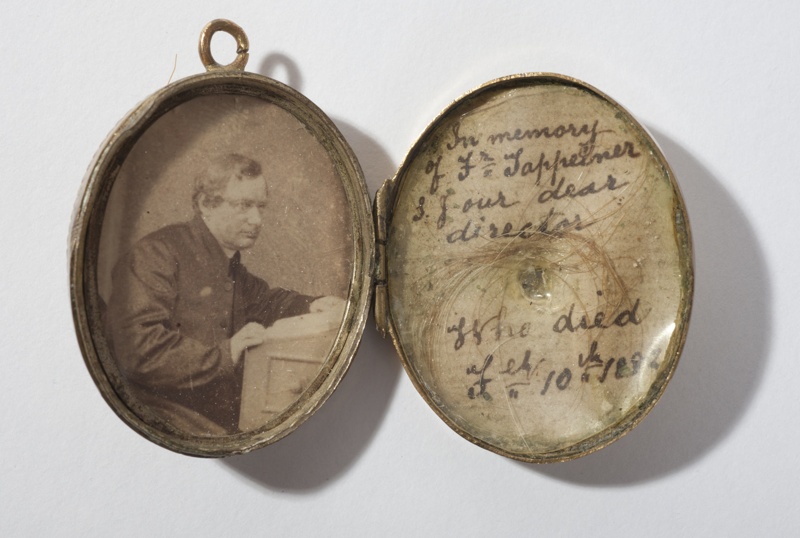 In memory
of Fr Tappeiner
S.J. our dear
director
Who died
10th